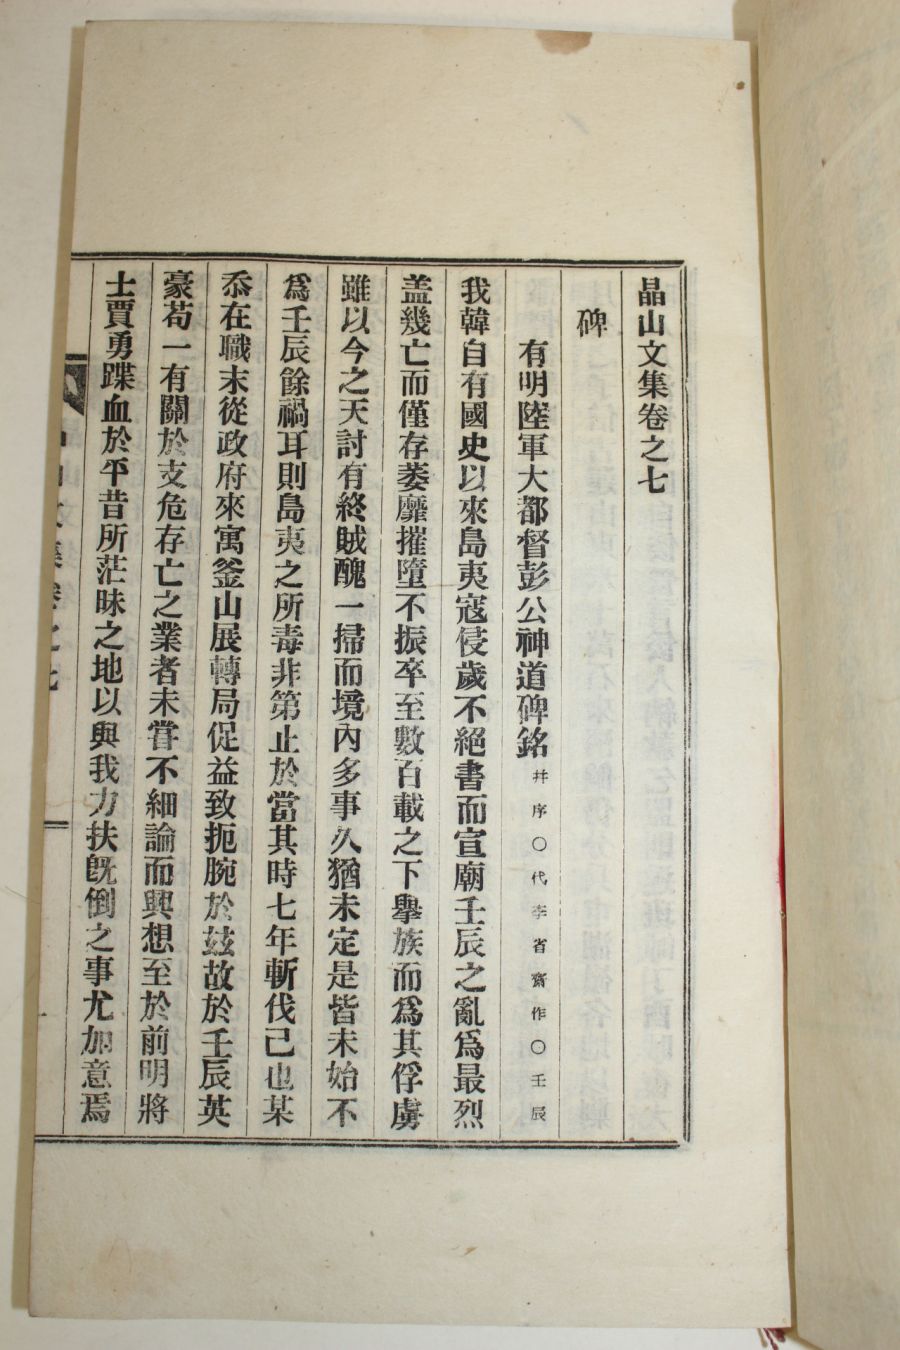 晶山文集卷之七
碑
有明陸軍大都督彭公神道碑銘 幷序○代李省齋作○壬辰
我韓自有國史以來島夷寇侵歲不絕書而宣廟壬辰之亂爲最烈
盖幾亡而僅存萎靡摧墮不振卒至數百載之下擧族而爲其俘虜
雖以今之天討有終賊醜一掃而境內多事久猶未定是皆未始不
爲壬辰餘禍耳則島夷之所毒非第止於當其時七年斬伐己也某
忝在職末從政府來寓釜山展轉局促益致扼腕於茲故於壬辰英
豪苟一有關於支危存亡之業者未嘗不細論而興想至於前明將
士賈勇蹀血於平昔所茫昧之地以與我力扶旣倒之事尤加意焉
集卷之七